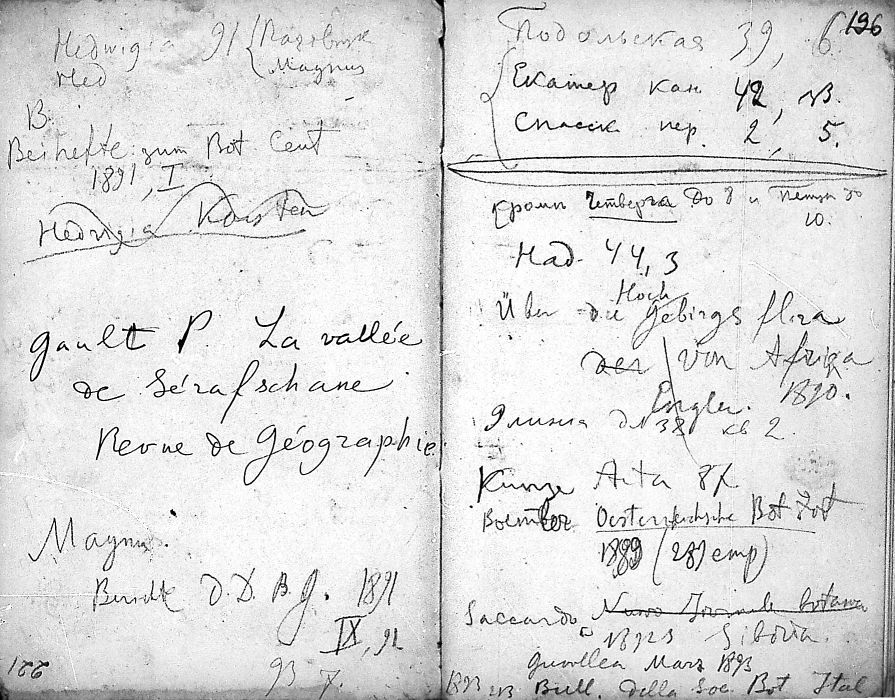 Hedwigia 91 {
Magnus
Hed
B.
Beihefte zum Bot Cent
1891, I
Hedwigia Karsten
Gault P. La vallée
de Sérafschane
Revue de Géographie
Magnus.
Berichte d. D. B. G. 1891
IX, 92
93 7.
221
196
Подольская 39, 6.
Екатер кан 42,
Спасск пер. 2, 5.
кроме Четверга до 8 и
10.
Над. 44, 3
Hoch
Über die Gebirgs flora
der von Afrika
Engler. 1890.
38 кв 2.
Kunze Acta 87
Oesterreichische Bot Zot
1889 (
Saccardo Nuovo Giornale botan
Siberia.
Mars 1893
1893 Bull. della Soc Bot Ital